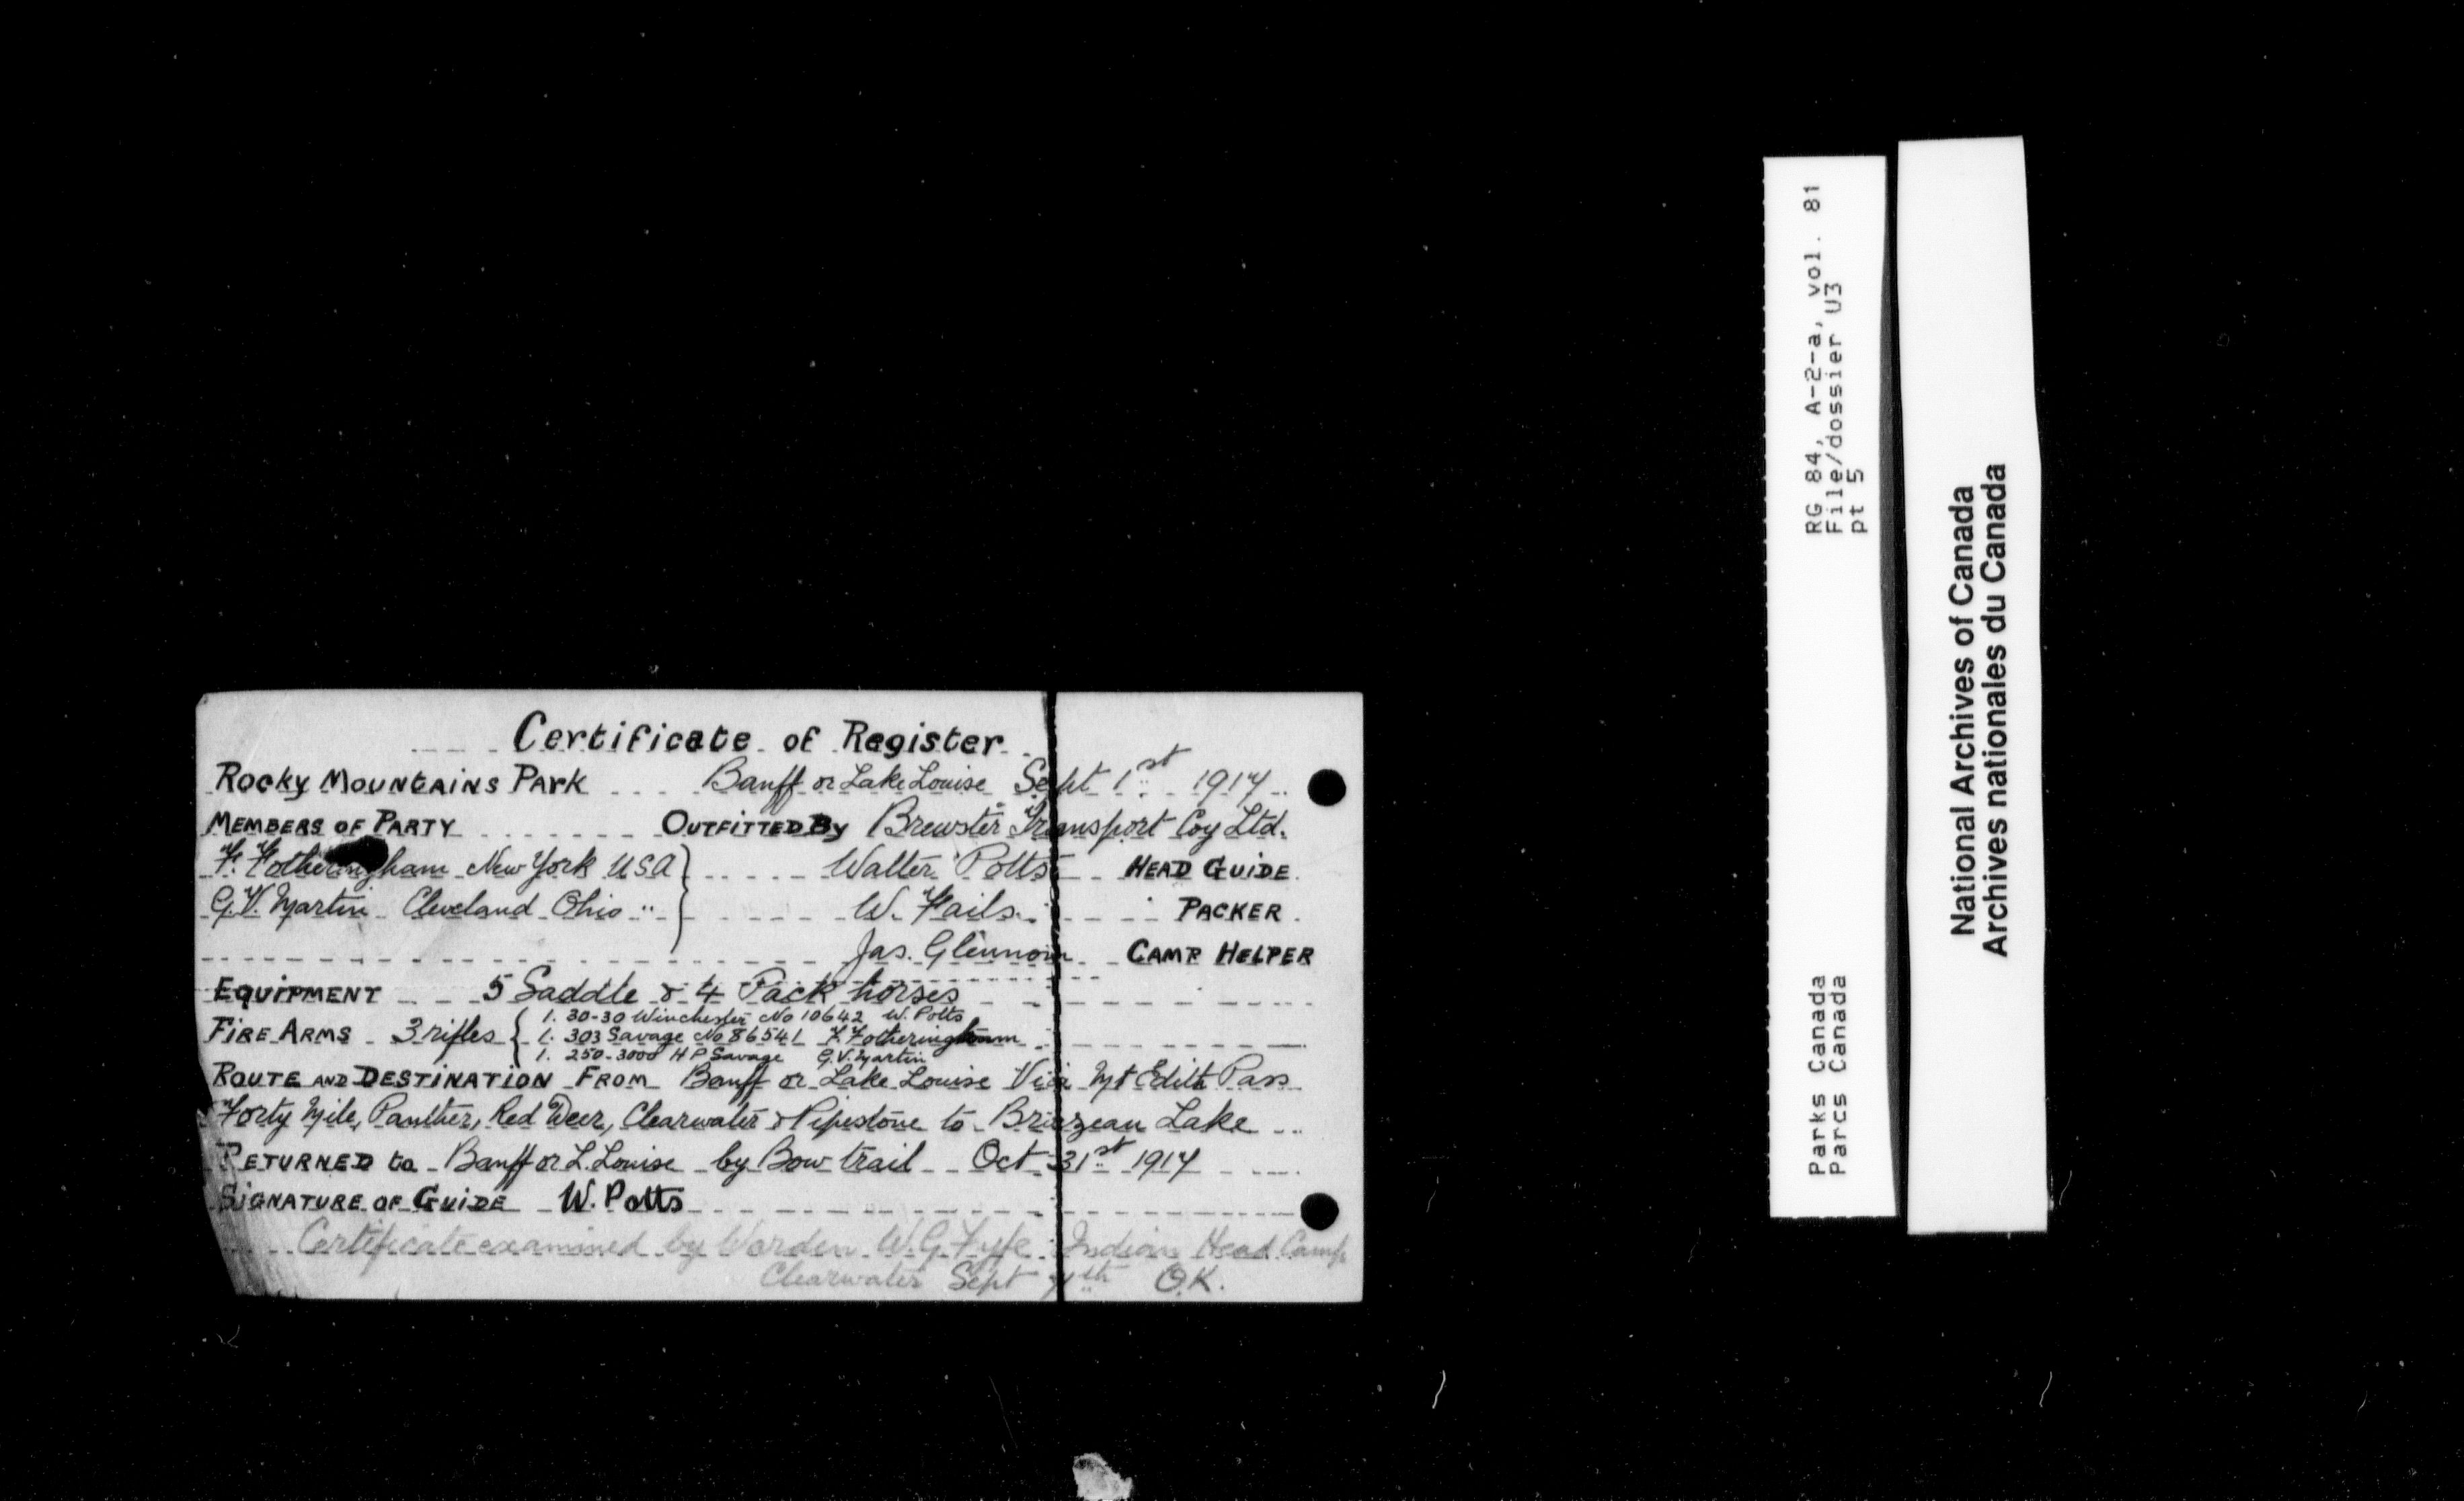 Certificate of Register
Rocky Mountains Park Banff or Lake Louise Sept 1st 1914
Members of Party Outfitted By Brewster Transport Coy Ltd.
F. Fotheringham New York USA Walter Potts Head Guide
G.V. Martin Cleveland Ohio " W. Fails Packer
Jas. Glennon Camp Helper
Equipment 5 Saddle & 4 Pack horses
Fire Arms 3 rifles { 1. 30-30 Winchester No 10642 W. Potts
1. 303 Savage No 86541 F. Fotheringham
1. 250-3000 H P Savage G.V. Martin
Route and Destination From Banff or Lake Louise Via Mt Edith Pass
Forty Mile, Panther, Red Deer, Clearwater & Pipestone to Brazeau Lake
Returned to Banff or L. Louise by Bow trail Oct 31st 1914
Signature of Guide W. Potts
Certificate examined by Warden W.G. Fyfe Indian Head Camp
Clearwater Sept O.K.
RG 84, A-2-a, vol. 81
File/dossier U3
pt 5
Parks Canada
Parcs Canada
National Archives of Canada
Archives nationales du Canada